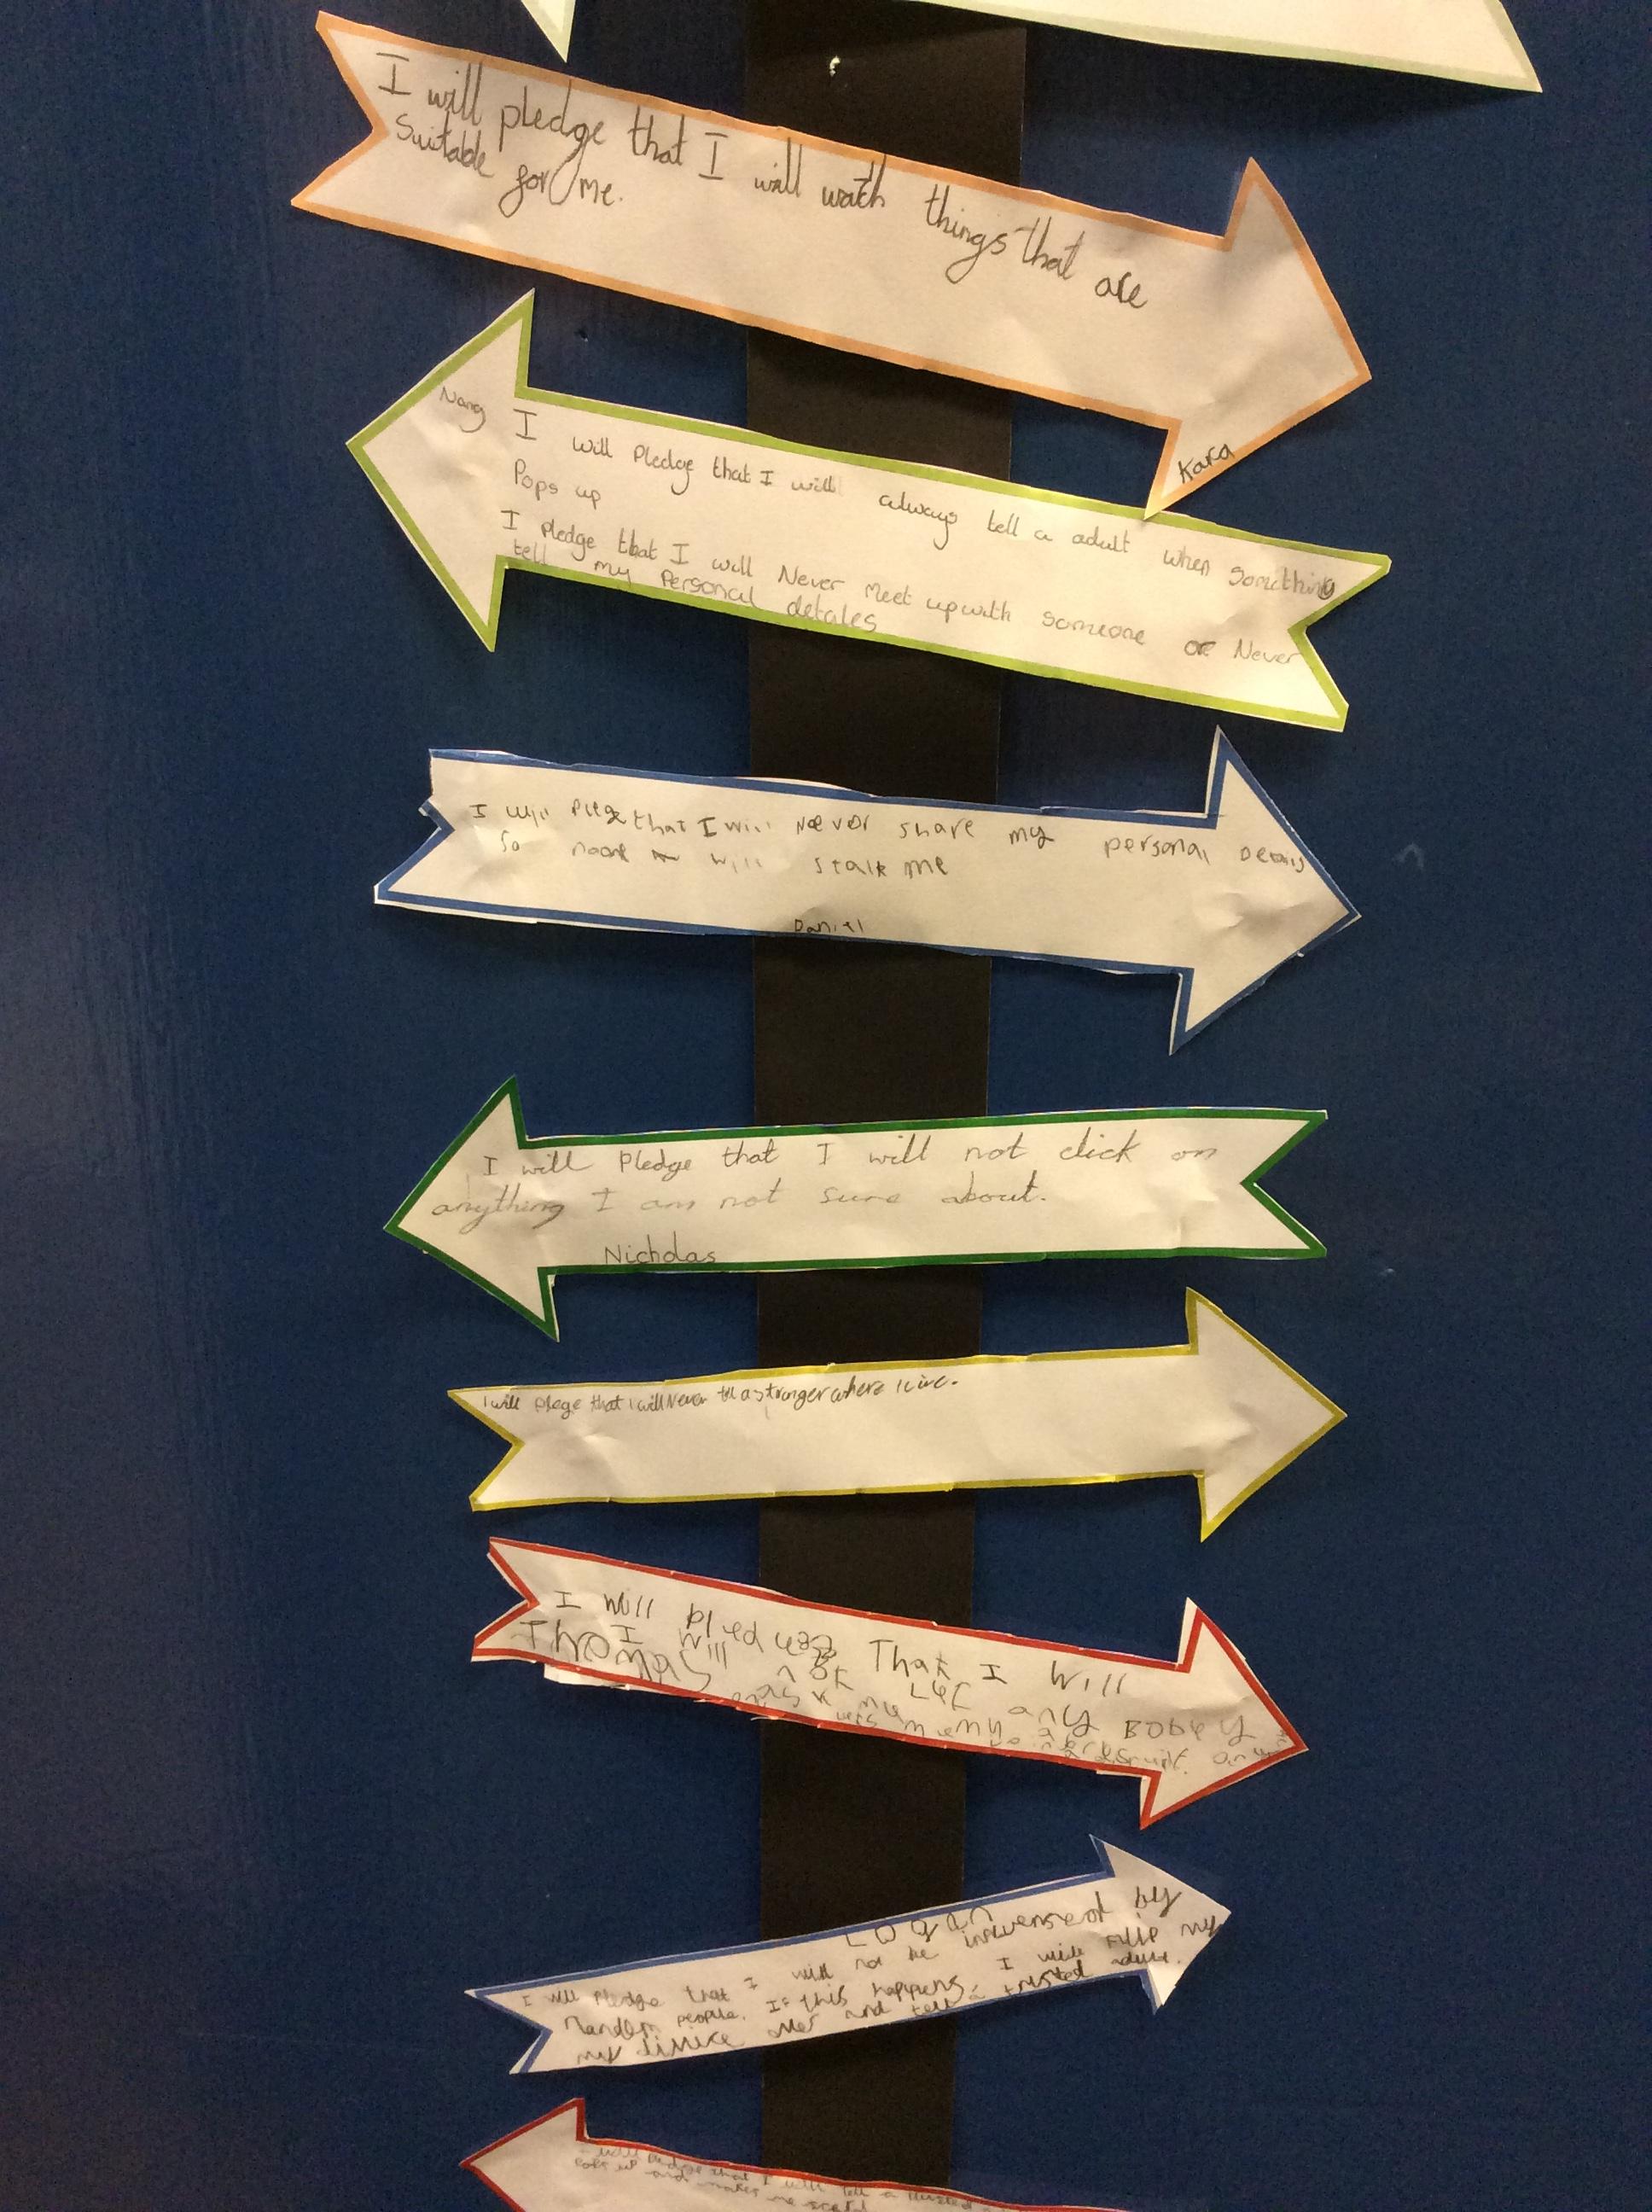 I will pledge that I will wacth things that are
Suitable for me.
Kara
Nang
I will Pledge that I will always tell a adult when Something
Pops up
I pledge that I will Never meet up with someone or Never
tell my Personal detales
I will plege that I will Never share my personal Details
So noone will stalk me
Daniel
I will Pledge that I will not click on
anything I am not sure about.
Nicholas
I will plege that I will Never tell a stranger where I live.
I will That I Will
I will not Let any Bobey
Thomas
Logan
I will Pledge that I will not be by
Random people. If this happens, I will my
my over and tell a trusted adult.
I will that I will tell a trusted
Pops up and makes me scared